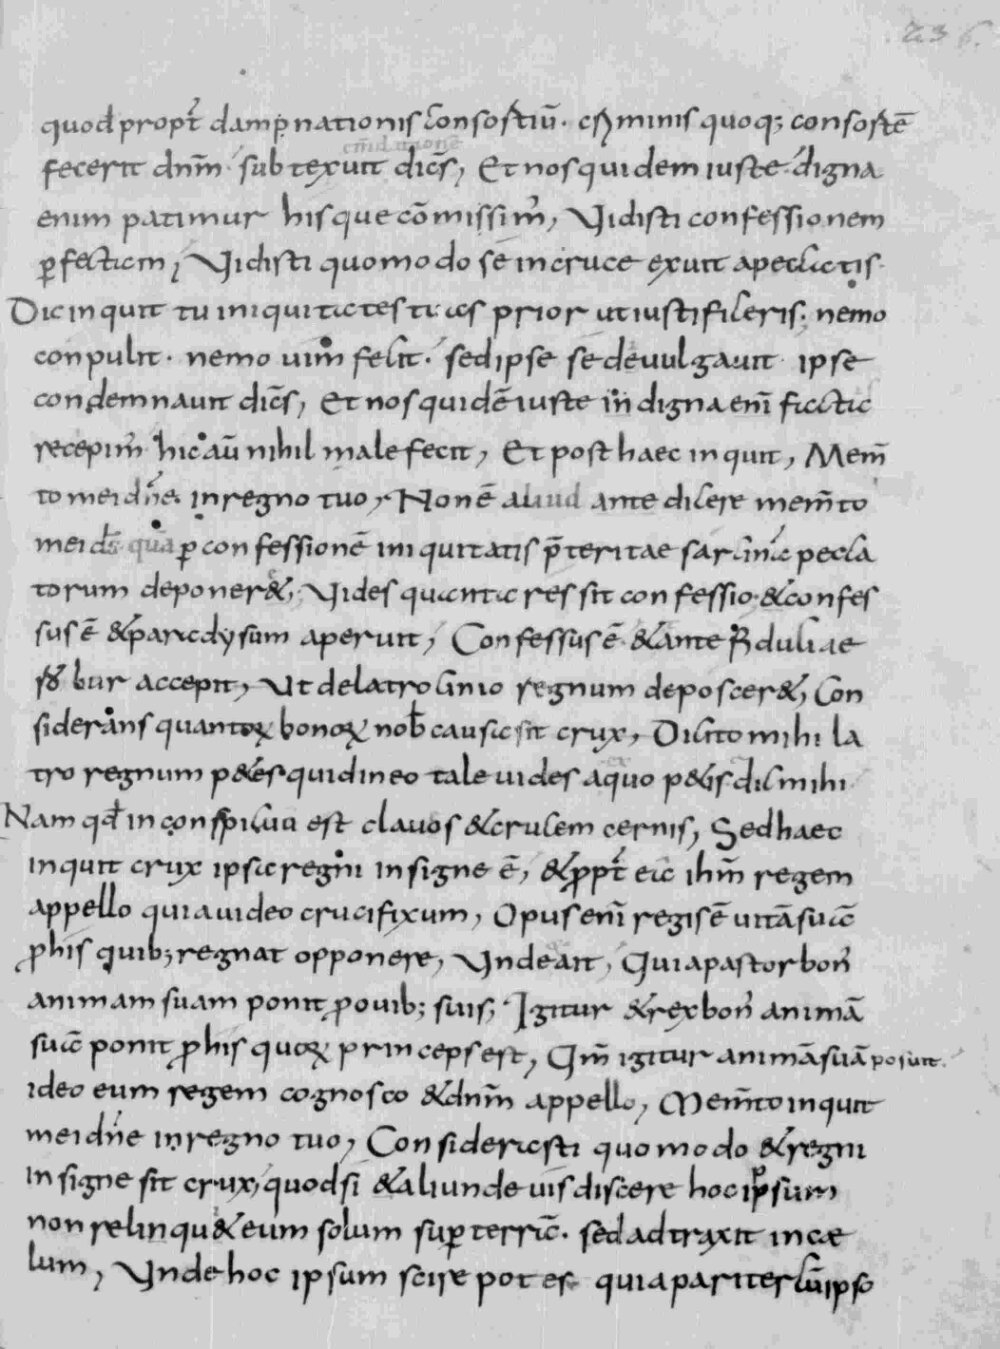 236.
quod propt̄ dampnationis consortiū· criminis quoq; consortē
fecerit dnm̄· subtexuit dicēs, Et nos quidem iuste· digna
enim patimur his que cōmissim', Vidisti confessionem
ꝑfectam, Vidisti quomodo se in cruce exuit a peccatis·
Dic inquit tu iniquitates tuas prior ut iustificeris; nemo
conpulit· nemo uim fecit· sed ipse se deuulgauit· ipse
condemnauit dicēs, Et nos quidē iuste nā digna eni᷃ facta
recepim' hic aū nihil male fecit, Et post haec inquit, Mem̄
to mei dn̄e in regno tuo, Non ē aliud ante dicere mem̄to
mei ds̄ quā ꝑ confessionē iniquitatis p̄teritae sarcina pecca
torum deponer&, Vides quanta res sit confessio· & confes
sus ē & paradysum aperuit, Confessus ē· & ante
accepit, Ut de latrocinio regnum deposcer&, Con
siderans quantoꝝ bonoꝝ nob̄ causa sit crux, Dicito mihi la
tro regnum p&es quid in eo tale uides a quo p&is dic mihi
Nam qd̄ in conspicuu est clauos & crucem cernis, Sed haec
inquit crux ipsa regni insigne ē, & ꝓpt̄ ea ihm̄ regem
appello quia uideo crucifixum, Opus eni᷃ regis ē uitā suā
ꝓ his quib; regnat opponere, Vnde ait, Quia pastor bon'
animam suam ponit ꝓ ouib; suis, Igitur & rex bon' animā
suā ponit ꝓ his quoꝝ princeps est, Qm̄ igitur animā suā posuit·
ideo eum regem cognosco & dnm̄ appello, Mem̄to inquit
mei dn̄e in regno tuo, Considerasti quomodo & regni
insigne sit crux, quod si & aliunde uis discere hoc ipsum
non relinqu& eum solum suꝑ terrā· sed adtraxit in cæ
lum, Vnde hoc ipsum scire potes quia pariter cū ipso